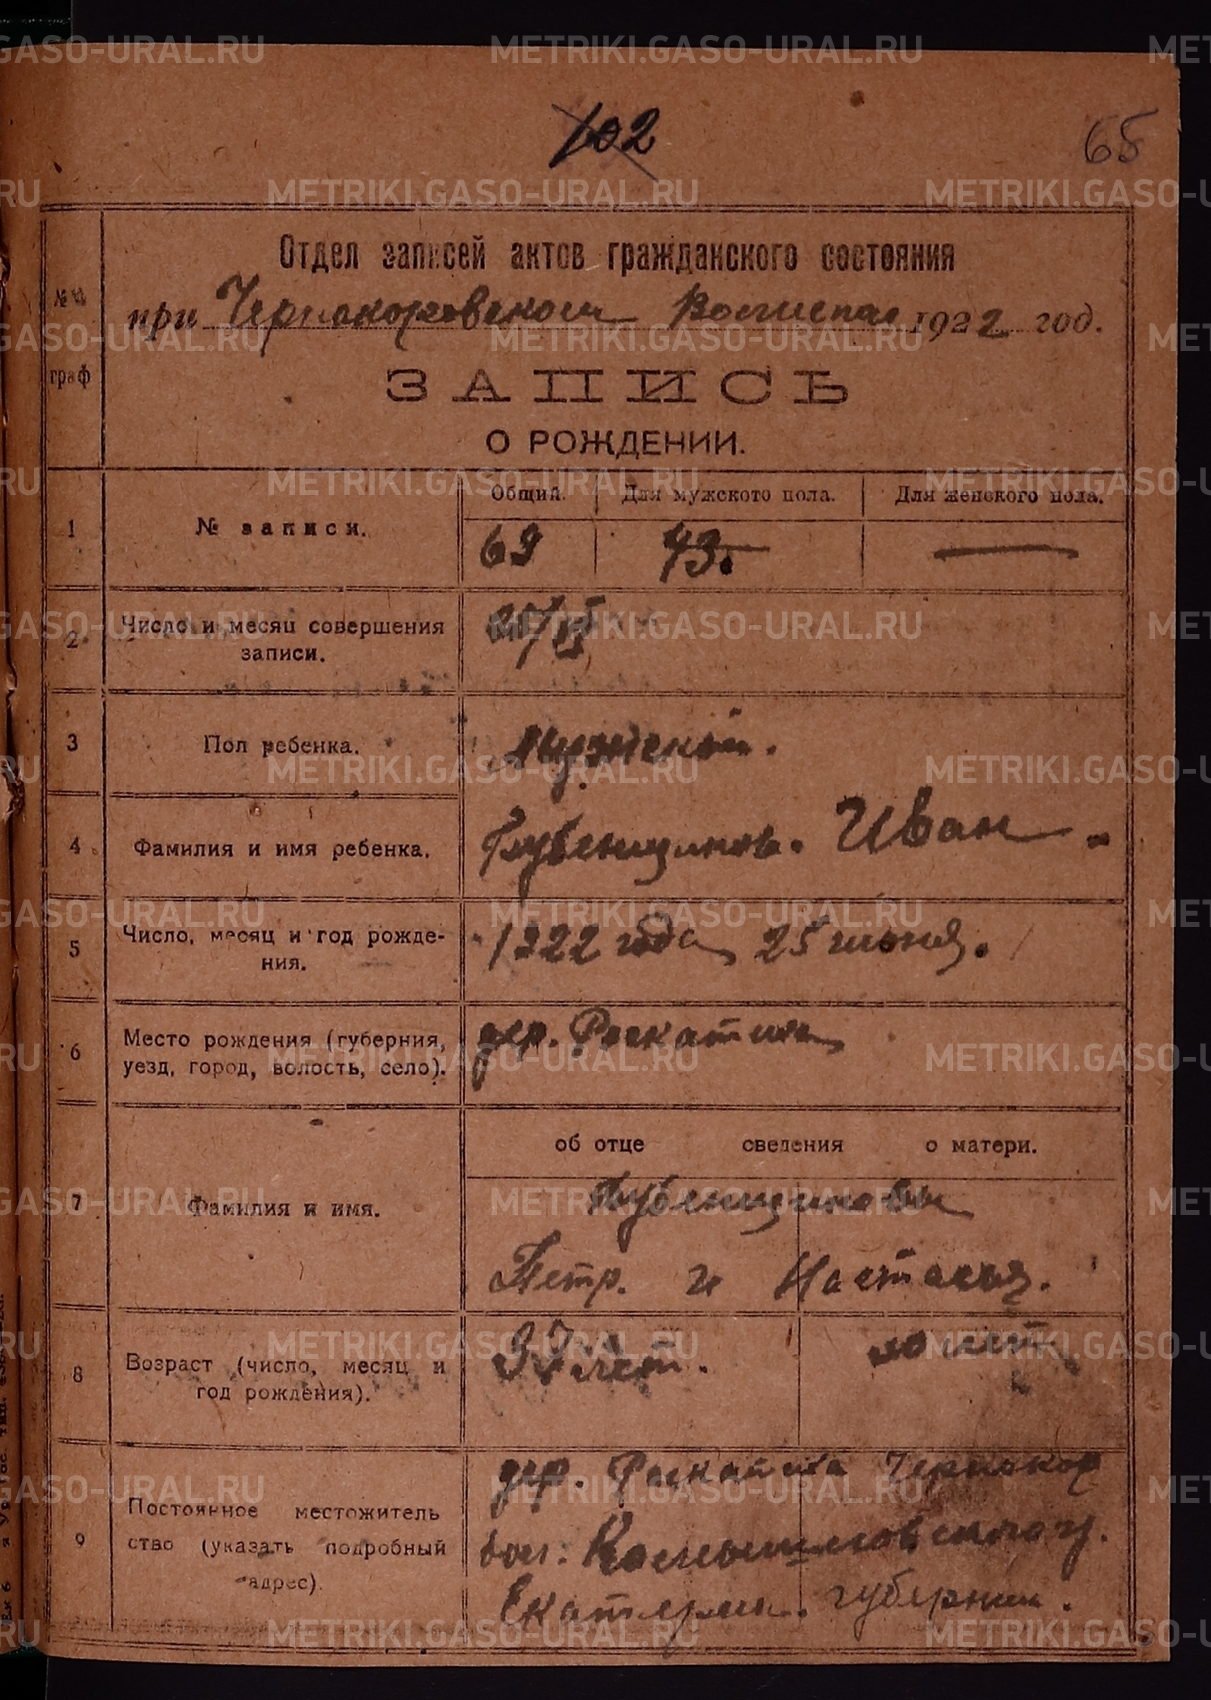 102
65
Отдел записей актов гражданского состояния
при Чернокоровском 1922 год.
№№ граф
ЗАПИСЬ
О РОЖДЕНИИ.
Общий. Для мужского пола. Для женского пола.
1 № записи. 69 43. —
2 Число и месяц совершения
записи.
3 Пол ребенка. Мужской.
4 Фамилия и имя ребенка. Иван.
5 Число, месяц и год рожде-
ния. 1922 года 25 июня.
6 Место рождения (губерния,
уезд, город, волость, село). дер. Роскатиха
об отце сведения о матери.
7 Фамилия и имя.
Петр. и Настасья.
8 Возраст (число, месяц и
год рождения). 37 лет. лет
9 Постоянное местожитель
ство (указать подробный
адрес).
дер. Роскатиха Чернокор
вол. Камышловского у.
Екатерин. губернии.
METRIKI.GASO-URAL.RU